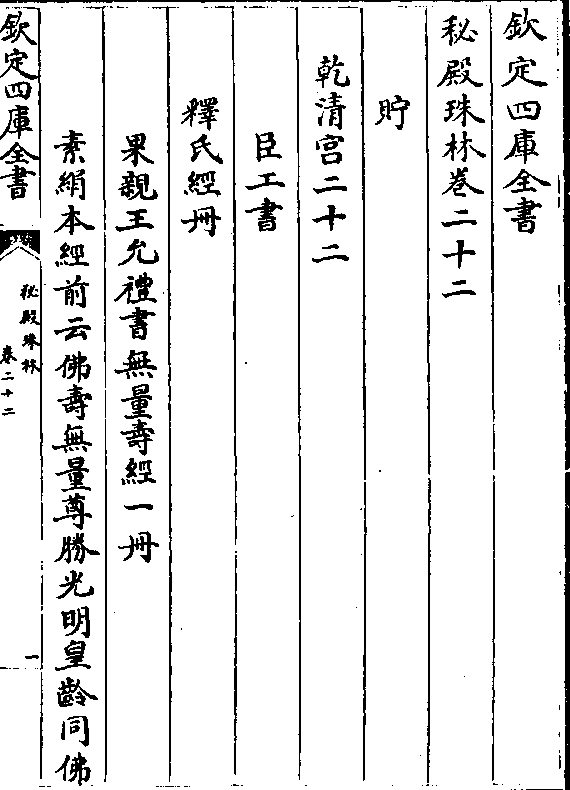 欽定四庫全書
秘殿珠林卷二十二
貯
乾清宫二十二
臣工書
釋氏經冊
果親王允禮書無量壽經一冊
素絹本經前云佛壽無量尊勝光明皇齡同佛
欽定四庫全書
秘殿珠林
卷二十二
一